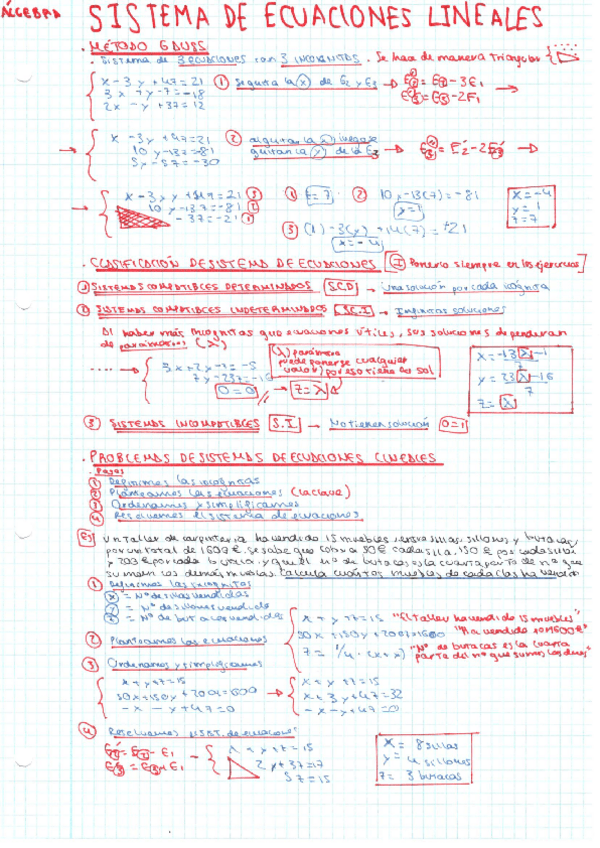 ÁLGEBRA
SISTEMA DE ECUACIONES LINEALES
. MÉTODO GAUSS
. Sistema de 3 ECUACIONES con 3 INCOGNITAS . Se hace de manera triangular
x - 3y + 4z = 21
3x + y - z = -18
2x - y + 3z = 12
① (x) de E2 y E3 → E2 = E2 - 3E1
E3 = E3 - 2E1
x - 3y + 4z = 21
10y - 13z = -81
5y - 5z = -30
②
quitamos la (y) de la E3 → E3 = E2 - 2E3
x - 3y + 4z = 21 ③
10y - 13z = -81 ②
- 3z = -21 ①
① z = 7 ② 10y - 13(7) = -81
y = 1
③ - 3(1) + 4(7) = 21
x = -4
x = -4
y = 1
z = 7
. CLASIFICACIÓN DE SISTEMA DE ECUACIONES [! Ponerlo siempre en los ejercicios]
① SISTEMAS COMPATIBLES DETERMINADOS S.C.D → Una solución por cada incógnita
② SISTEMAS COMPATIBLES INDETERMINADOS S.C.I → Infinitas soluciones
Al haber más incognitas que ecuaciones útiles, sus soluciones dependerán
de parámetros (λ)
(λ) parámetro
puede ponerse cualquier
valor y por eso tiene ∞ sol
3x + 2y - z = -5
0 = 0 → z = λ
z = λ
③ SISTEMAS INCOMPATIBLES S.I. → No tienen solución 0 = 1
. PROBLEMAS DE SISTEMAS DE ECUACIONES LINEALES
. Pasos
① Definimos las incógnitas
② Planteamos las ecuaciones (la clave)
③ Ordenamos y simplificamos
④ Resolvemos el sistema de ecuaciones
Ej Un taller de carpintería ha vendido 15 muebles, entre sillas, sillones y butacas,
por un total de 1600 €. Se sabe que cobra 50€ cada silla, 150 € por cada sillón
y 200 € por cada butaca, y que el nº de butacas es la cuarta parte de nº que
suman los demás muebles. Calcula cuántos muebles de cada clas ha vendido
① Definimos las incógnitas
x = Nº de sillas vendidas
y = Nº de sillones vendidos
z = Nº de butacas vendidas
② Planteamos las ecuaciones
x + y + z = 15 "El taller ha vendido 15 muebles"
50x + 150y + 200z = 1600 "Ha vendido por 1600€"
z = 1/4 · (x + y) "Nº de butacas es la cuarta
parte del nº que suman los demás"
③ Ordenamos y simplificamos
x + y + z = 15
50x + 150y + 200z = 1600
- x - y + 4z = 0
x + y + z = 15
x + 3y + 4z = 32
- x - y + 4z = 0
④ Resolvemos SIST. de ecuaciones
E2 = E2 - E1
E3 = E3 + E1
x + y + z = 15
2y + 3z = 17
5z = 15
x = 8 sillas
y = 4 sillones
z = 3 butacas